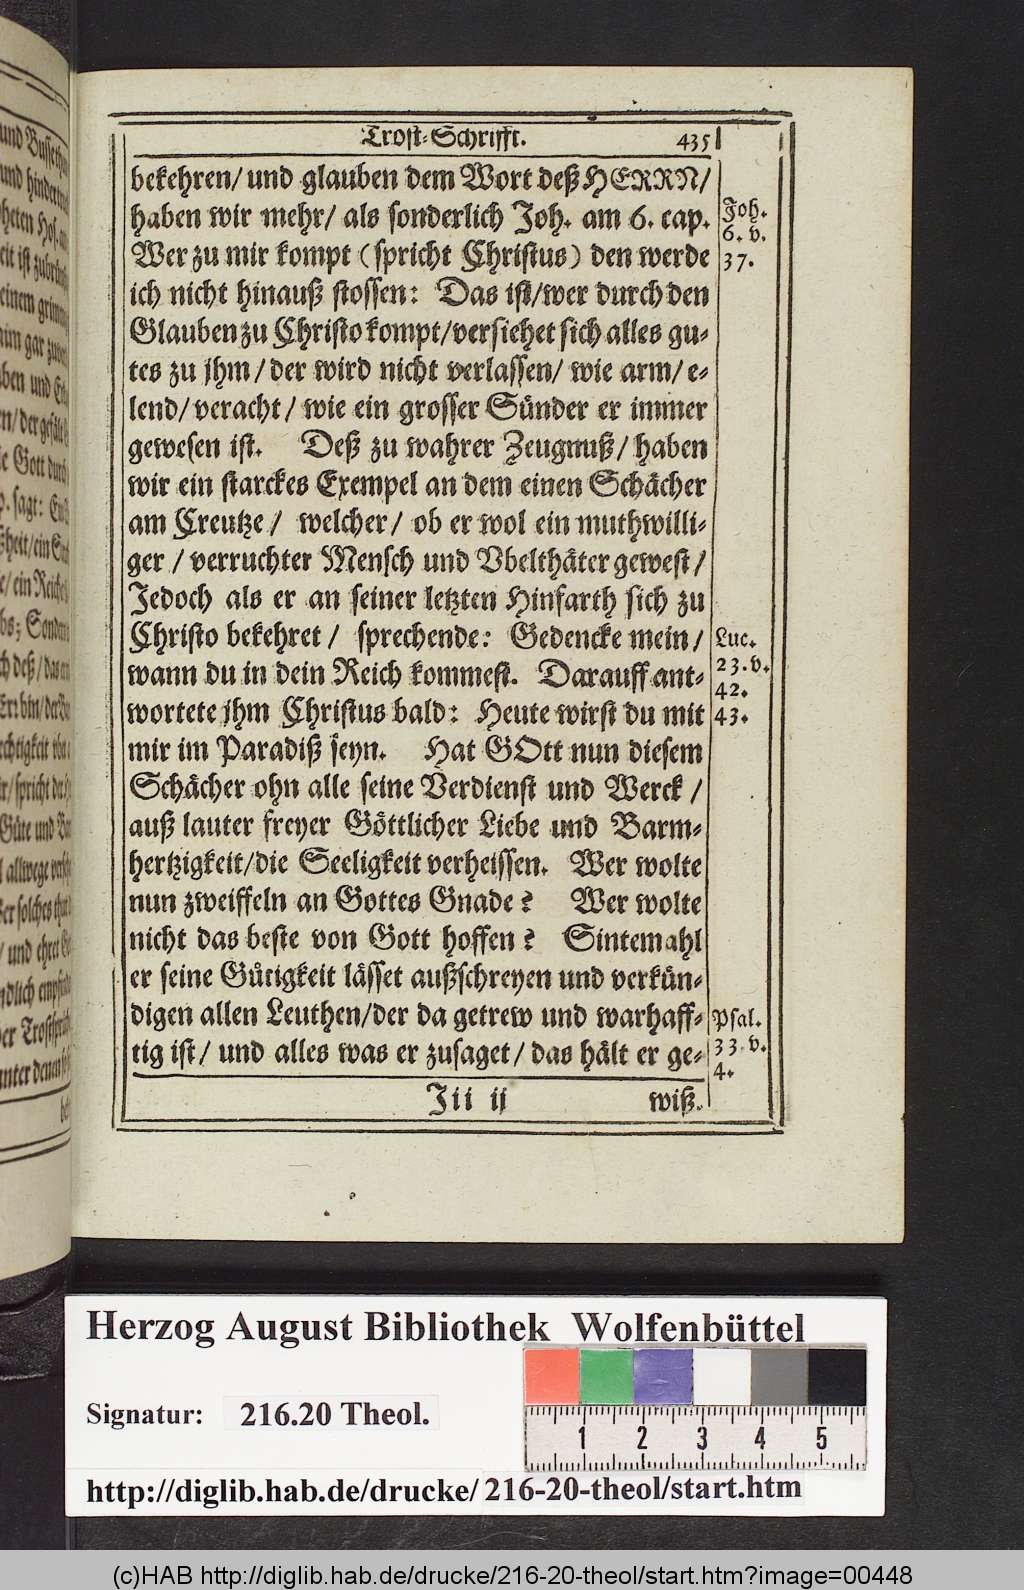 Trost-Schrifft. 435
bekehren/ und glauben dem Wort deß HERRN/
haben wir mehr/ als sonderlich Joh. am 6. cap.
Wer zu mir kompt (spricht Christus) den werde
ich nicht hinauß stossen: Das ist/wer durch den
Glauben zu Christo kompt/versiehet sich alles gu-
tes zu jhm/ der wird nicht verlassen/ wie arm/ e-
lend/ veracht/ wie ein grosser Sünder er immer
gewesen ist. Deß zu wahrer Zeugnuß/ haben
wir ein starckes Exempel an dem einen Schächer
am Creutze/ welcher/ ob er wol ein muthwilli-
ger/ verruchter Mensch und Vbelthäter gewest/
Jedoch als er an seiner letzten Hinfarth sich zu
Christo bekehret/ sprechende: Gedencke mein/
wann du in dein Reich kommest. Darauff ant-
wortete jhm Christus bald: Heute wirst du mit
mir im Paradiß seyn. Hat GOtt nun diesem
Schächer ohn alle seine Verdienst und Werck/
auß lauter freyer Göttlicher Liebe und Barm-
hertzigkeit/die Seeligkeit verheissen. Wer wolte
nun zweiffeln an Gottes Gnade? Wer wolte
nicht das beste von Gott hoffen? Sintemahl
er seine Gütigkeit lässet außschreyen und verkün-
digen allen Leuthen/der da getrew und warhaff-
tig ist/ und alles was er zusaget/ das hält er ge-
Jii ij wiß.
Joh.
6. v.
37.
Luc.
23. v.
42.
43.
Psal.
33. v.
4.
Herzog August Bibliothek Wolfenbüttel
Signatur: 216.20 Theol.
1 2 3 4 5
http://diglib.hab.de/drucke/216-20-theol/start.htm
(c)HAB http://diglib.hab.de/drucke/216-20-theol/start.htm?image=00448